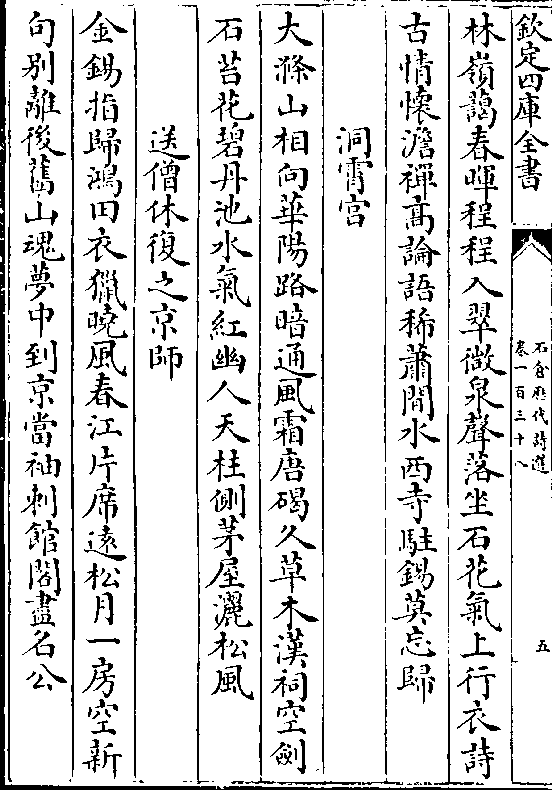 欽定四庫全書
石倉歷代詩選
卷一百三十八
五
林嶺藹春暉程程入翠微泉聲落坐石花氣上行衣詩
古情懷澹禪髙論語稀蕭閒水西寺駐錫莫忘歸
洞霄宮
大滌山相向華陽路暗通風霜唐碣久草木漢祠空劒
石苔花碧丹池水氣紅幽人天柱側茅屋灑松風
送僧休復之京師
金錫指歸鴻田衣獵曉風春江片席逺松月一房空新
句别離後舊山魂夢中到京當袖刺館閣盡名公